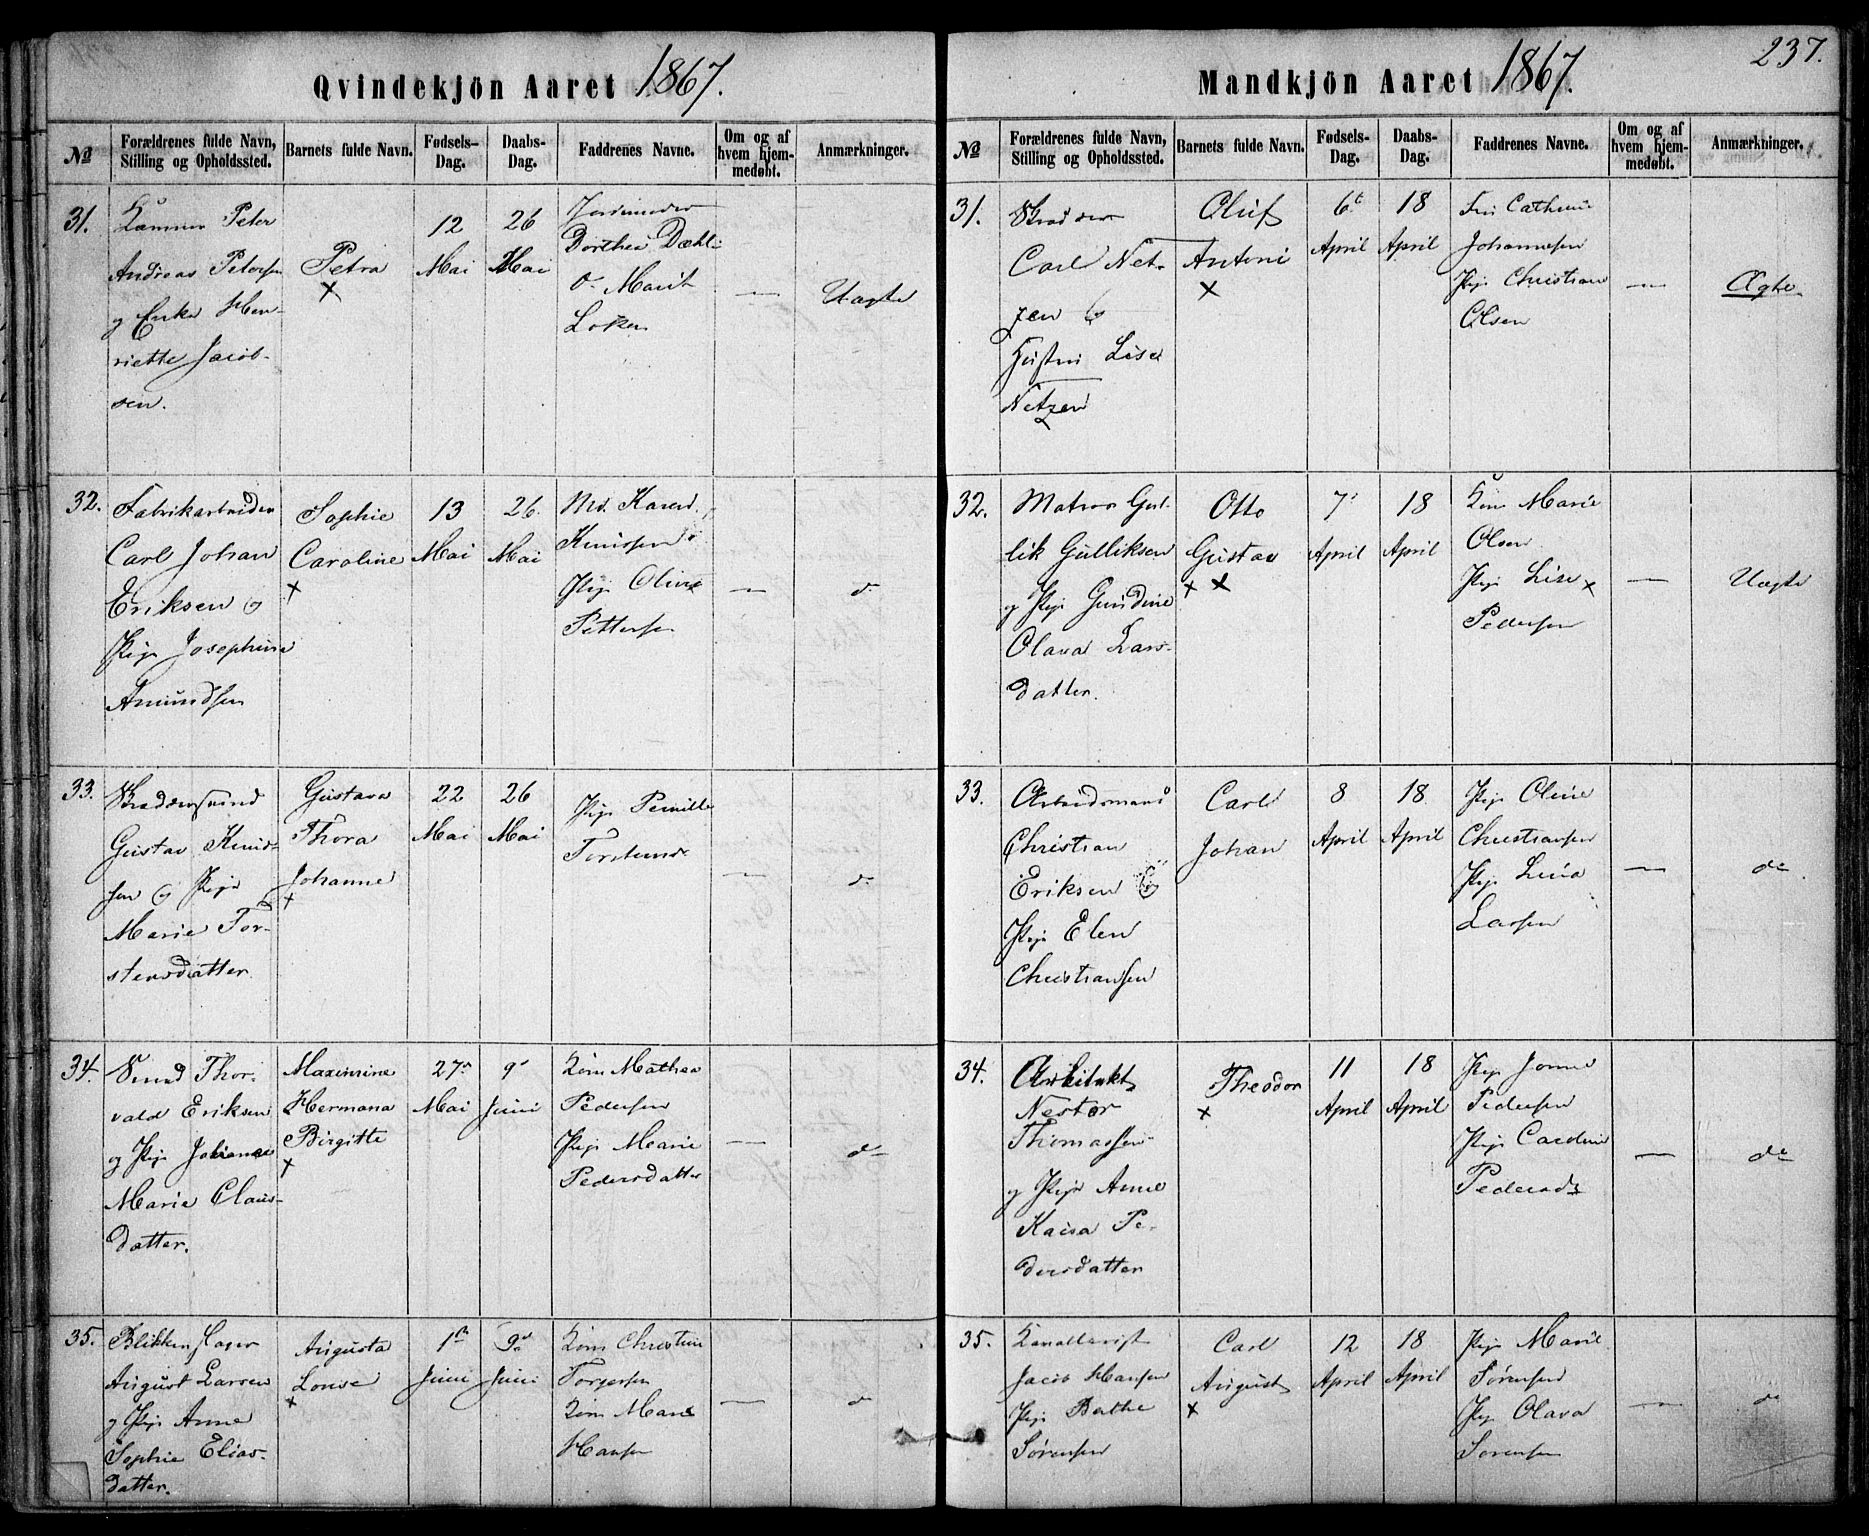 Qvindekjön Aaret 1867.
№
Forældrenes fulde Navn, Stilling og Opholdssted.
Barnets fulde Navn.
Fødsels-Dag.
Daabs-Dag.
Faddrenes Navne.
Om og af hvem hjem-medøbt.
Anmærkninger.
31.
Peter
Andreas Petersen
og Enke Hen-
riette Jacob-
sen.
Petra
×
12
Mai
26
Mai
Jordmoder
Dorthea Dæhli
o Marit
Loken
—
Uægte
32.
Fabrikarbeider
Carl Johan
Eriksen og
Pige Josephine
Amundsen
Sophie
Caroline
×
13
Mai
26
Mai
Md. Karen
Knudsen
Pige Oline
Pettersen
—
do
33.
Skræddersvend
Gustav Knud-
sen og Pige
Marie Tor-
stensdatter
Gustava
Thora
Johanne
×
22
Mai
26
Mai
Pige Pernille
Torstensd
—
do
34.
Smed Thor-
vald Eriksen
og Pige Johanne
Marie Claus-
datter.
Maximine
Hermana
Birgitte
×
27
Mai
9
Juni
Kone Mathea
Pedersen
Pige Marie
Pedersdatter
—
do
35.
Blikkenslager
August Larsen
og Pige Anne
Sophie Elias-
datter.
Augusta
Louise
×
1
Juni
9
Juni
Kone Christine
Torgersen
Kone Marie
Hansen
—
do
237.
Mandkjön Aaret 1867.
№
Forældrenes fulde Navn, Stilling og Opholdssted.
Barnets fulde Navn.
Fødsels-Dag.
Daabs-Dag.
Faddrenes Navne.
Om og af hvem hjem-medøbt.
Anmærkninger.
31.
Skrædder
Carl Net-
zen og
Hustru Lise
Netzen
Oluf
Antoni
×
6
April
18
April
Fru Cathrine
Johannesen
Pige Christian
Olsen
—
Ægte
32.
Matros Gul-
lik Gulliksen
og Pige Gundine
Olava Lars-
datter.
Otto
Gustav
× ×
7
April
18
April
Kone Marie
Olsen
Pige Lise ×
Pedersen
—
Uægte
33.
Arbeidsmand
Christian
Eriksen og
Pige Elen
Christiansen
Carl
Johan
8
April
18
April
Pige Oline
Christiansen
Pige Lina
Larsen
—
do
34.
Arkitekt
Nestor
Thomassen
og Pige Anne
Kaisa Pe-
dersdatter
Theodor
×
11
April
18
April
Pige
Pedersen
Pige Caroline
Pedersd
—
do
35.
Jacob Hansen
Pige Berthe
Sørensen
Carl
August
×
12
April
18
April
Pige Marie
Sørensen
Pige Olava
Sørensen
—
do